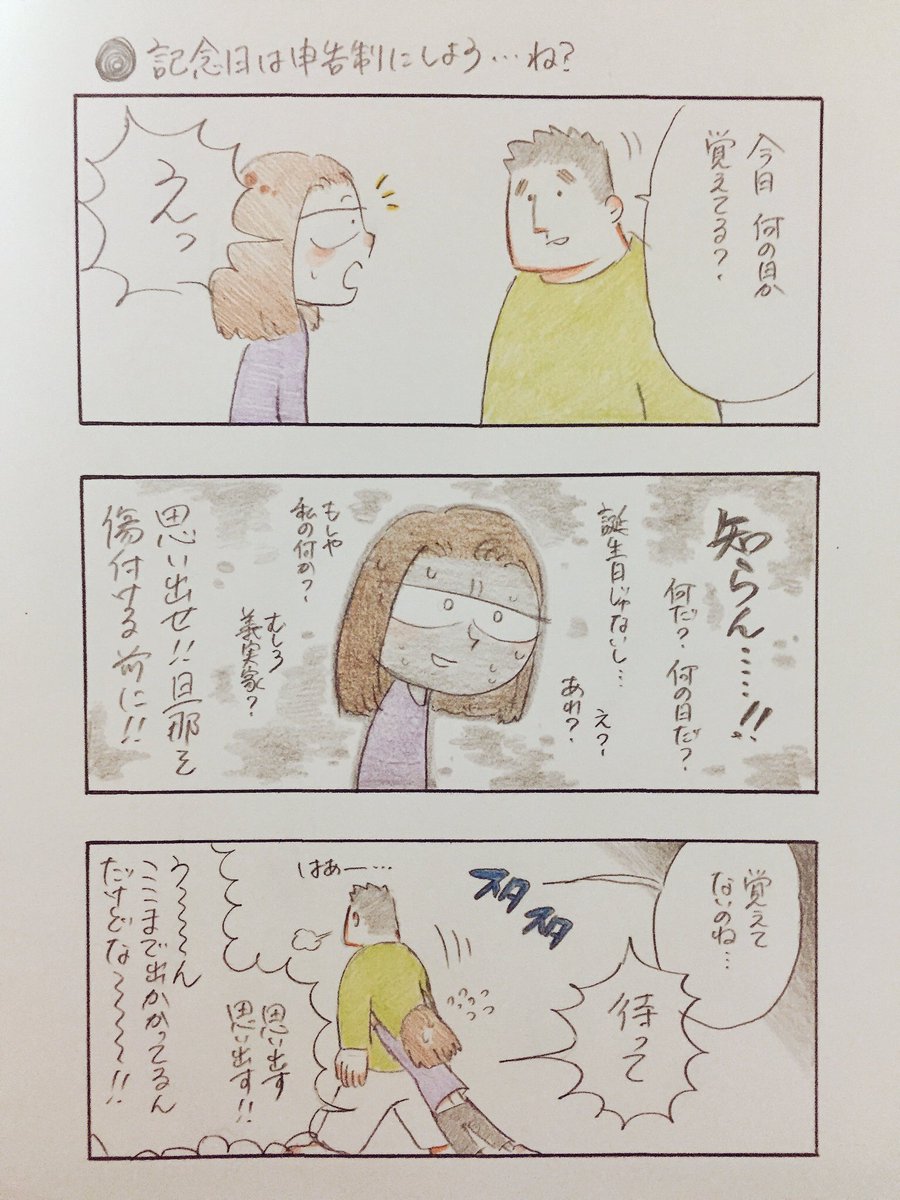 記念日は申告制にしよう…ね?
今日 何の日か
覚えてる?
えっ
知らん……!!
何だ?何の日だ?
誕生日じゃないし…
え?
あれ?
もしや
私の何か?
むしろ
義実家?
思い出せ!!旦那を
傷付ける前に!!
覚えて
ないのね…
スタ
スタ
待って
はぁー…
思い出す
思い出す!!
う〜〜〜ん
ここまで出かかってるん
だけどな〜〜〜〜!!